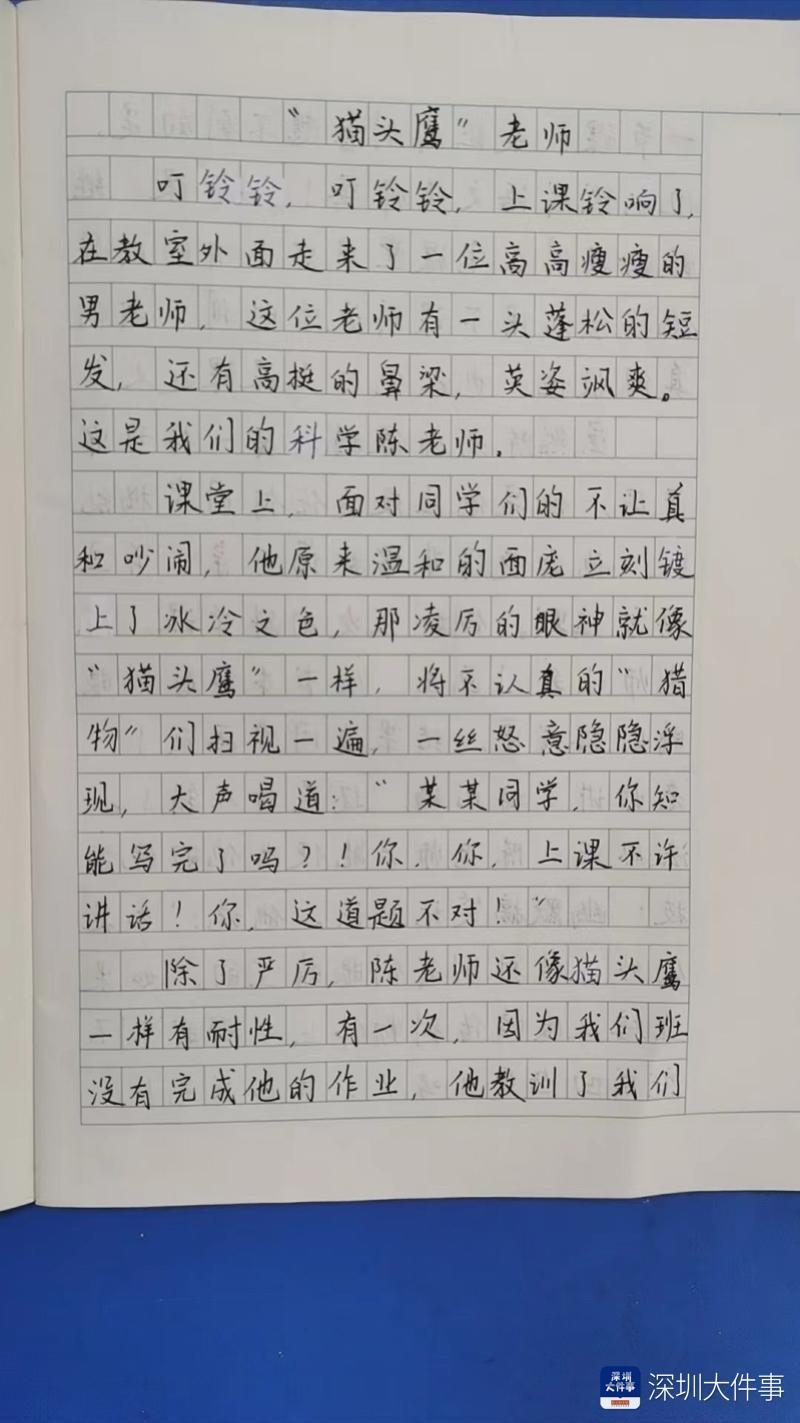 “猫头鹰”老师
叮铃铃，叮铃铃，上课铃响了，
在教室外面走来了一位高高瘦瘦的
男老师，这位老师有一头蓬松的短
发，还有高挺的鼻梁，英姿飒爽。
这是我们的科学陈老师。
课堂上，面对同学们的不让真
和吵闹，他原来温和的面庞立刻镀
上了冰冷之色，那凌厉的眼神就像
“猫头鹰”一样，将不认真的“猎
物”们扫视一遍，一丝怒意隐隐浮
现，大声喝道：“某某同学，你知
能写完了吗？！你，你，上课不许
讲话！你，这道题不对！”
除了严厉，陈老师还像猫头鹰
一样有耐性，有一次，因为我们班
没有完成他的作业，他教训了我们
深圳
大件事
深圳大件事